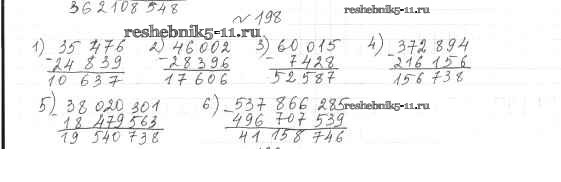 362108548
№198
reshebnik5-11.ru
1) 35 476 2) 46 002 3) 60 015 4) 372 894
- 24 839 - 28 396 - 7428 - 216 156
10 637 17 606 52 587 156 738
reshebnik5-11.ru
5) 38 020 301 6) 537 866 285
- 18 479 563 - 496 707 539
19 540 738 41 158 746
reshebnik5-11.ru